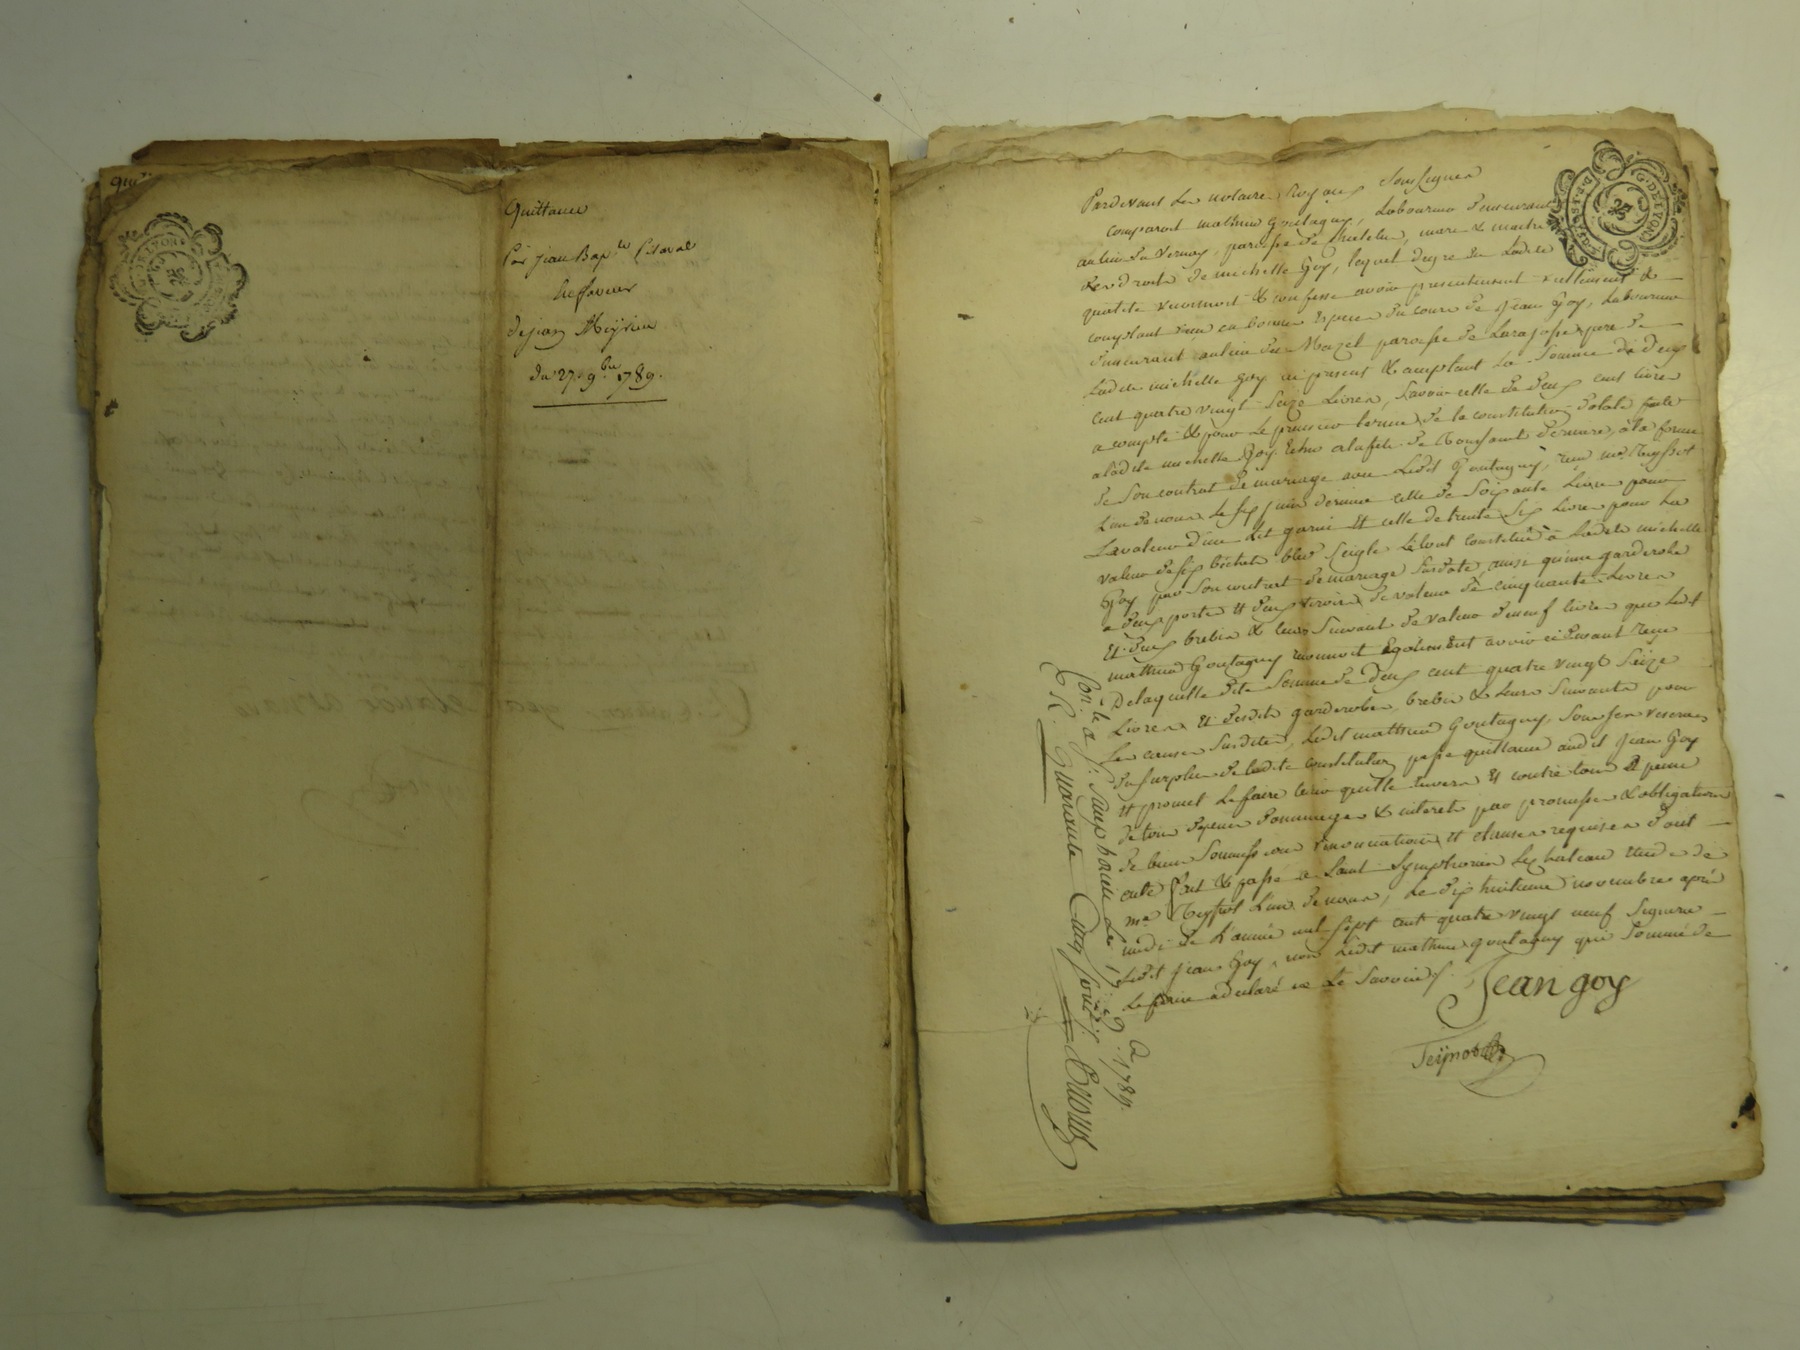 Quittance
Par Jean Bapte Pitaval
dejean Meyrieu
du 27. 9bre 1789.
Pardevant Les notaires Royaux Soussignes
comparoit mathieu Goutagny, Laboureur demeurant
au lieu du Vernay, paroisse de chatelus, mari & maitre
des droits de michelle Goy, lequel degre en Ladite
qualité reconnoit & confesse avoir presentement réellement &
comptant reçu en bonnes especes du cours de Jean Goy, Laboureur
demeurant au lieu du Mazel paroisse de Larajasse pere de
Ladite michelle Goy ici present & acceptant La Somme de deux
cent quatre vingt Seize Livres, Savoir celle de deux cent livres
a compte & pour Le premier terme de la constitution dotale faite
aladite michelle Goy échu alafete de Toussaint derniere, à la forme
de Son contrat de mariage avec Ledit Goutagny, reçu me Teyssot
L'un de nous Le six juin dernier celle de Soixante Livres pour
La valeur d'un Lit garni Et celle de trente Six Livres pour La
valeur de six bichets bled Seigle Letout constitué à Ladite michelle
Goy par Son contrat de mariage Susdaté, ainsi qu'une garderobe
a deux portes et deux tiroirs de valeur de cinquante Livres
Et deux brebis & leurs Suivants de valeur de neuf livres que Ledit
mathieu Goutagny reconnoit également avoir ci devant reçu
Delaquelle dite Somme de deux cent quatre vingt Seize
Livres Et desdits garderobes, brebis & Leurs Suivants pour
Les causes Susdites, Ledit mathieu Goutagny, Sous Les reserves
du Surplus de ladite constitution passe quittance audit Jean Goy
et promet Le faire tenir quitte envers Et contre tous a peine
de tous depens dommages & interets par promesses & obligations
de biens Soumissions renonciations et clauses requises Dont
acte fait & passé a Saint Symphorien Le chateau Etude de
me Teyssot L'un de nous, Le dix huitieme novembre après
midi de L'année mil Sept cent quatre vingt neuf Signé
Ledit Jean Goy, non Ledit mathieu Goutagny qui Sommé de
Le faire a declaré ne Le Savoir
Jean goy
R. quarante Cinq Sous